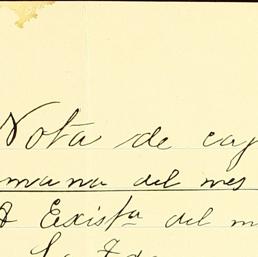 Nota de caj
mana del mes
Existª del m